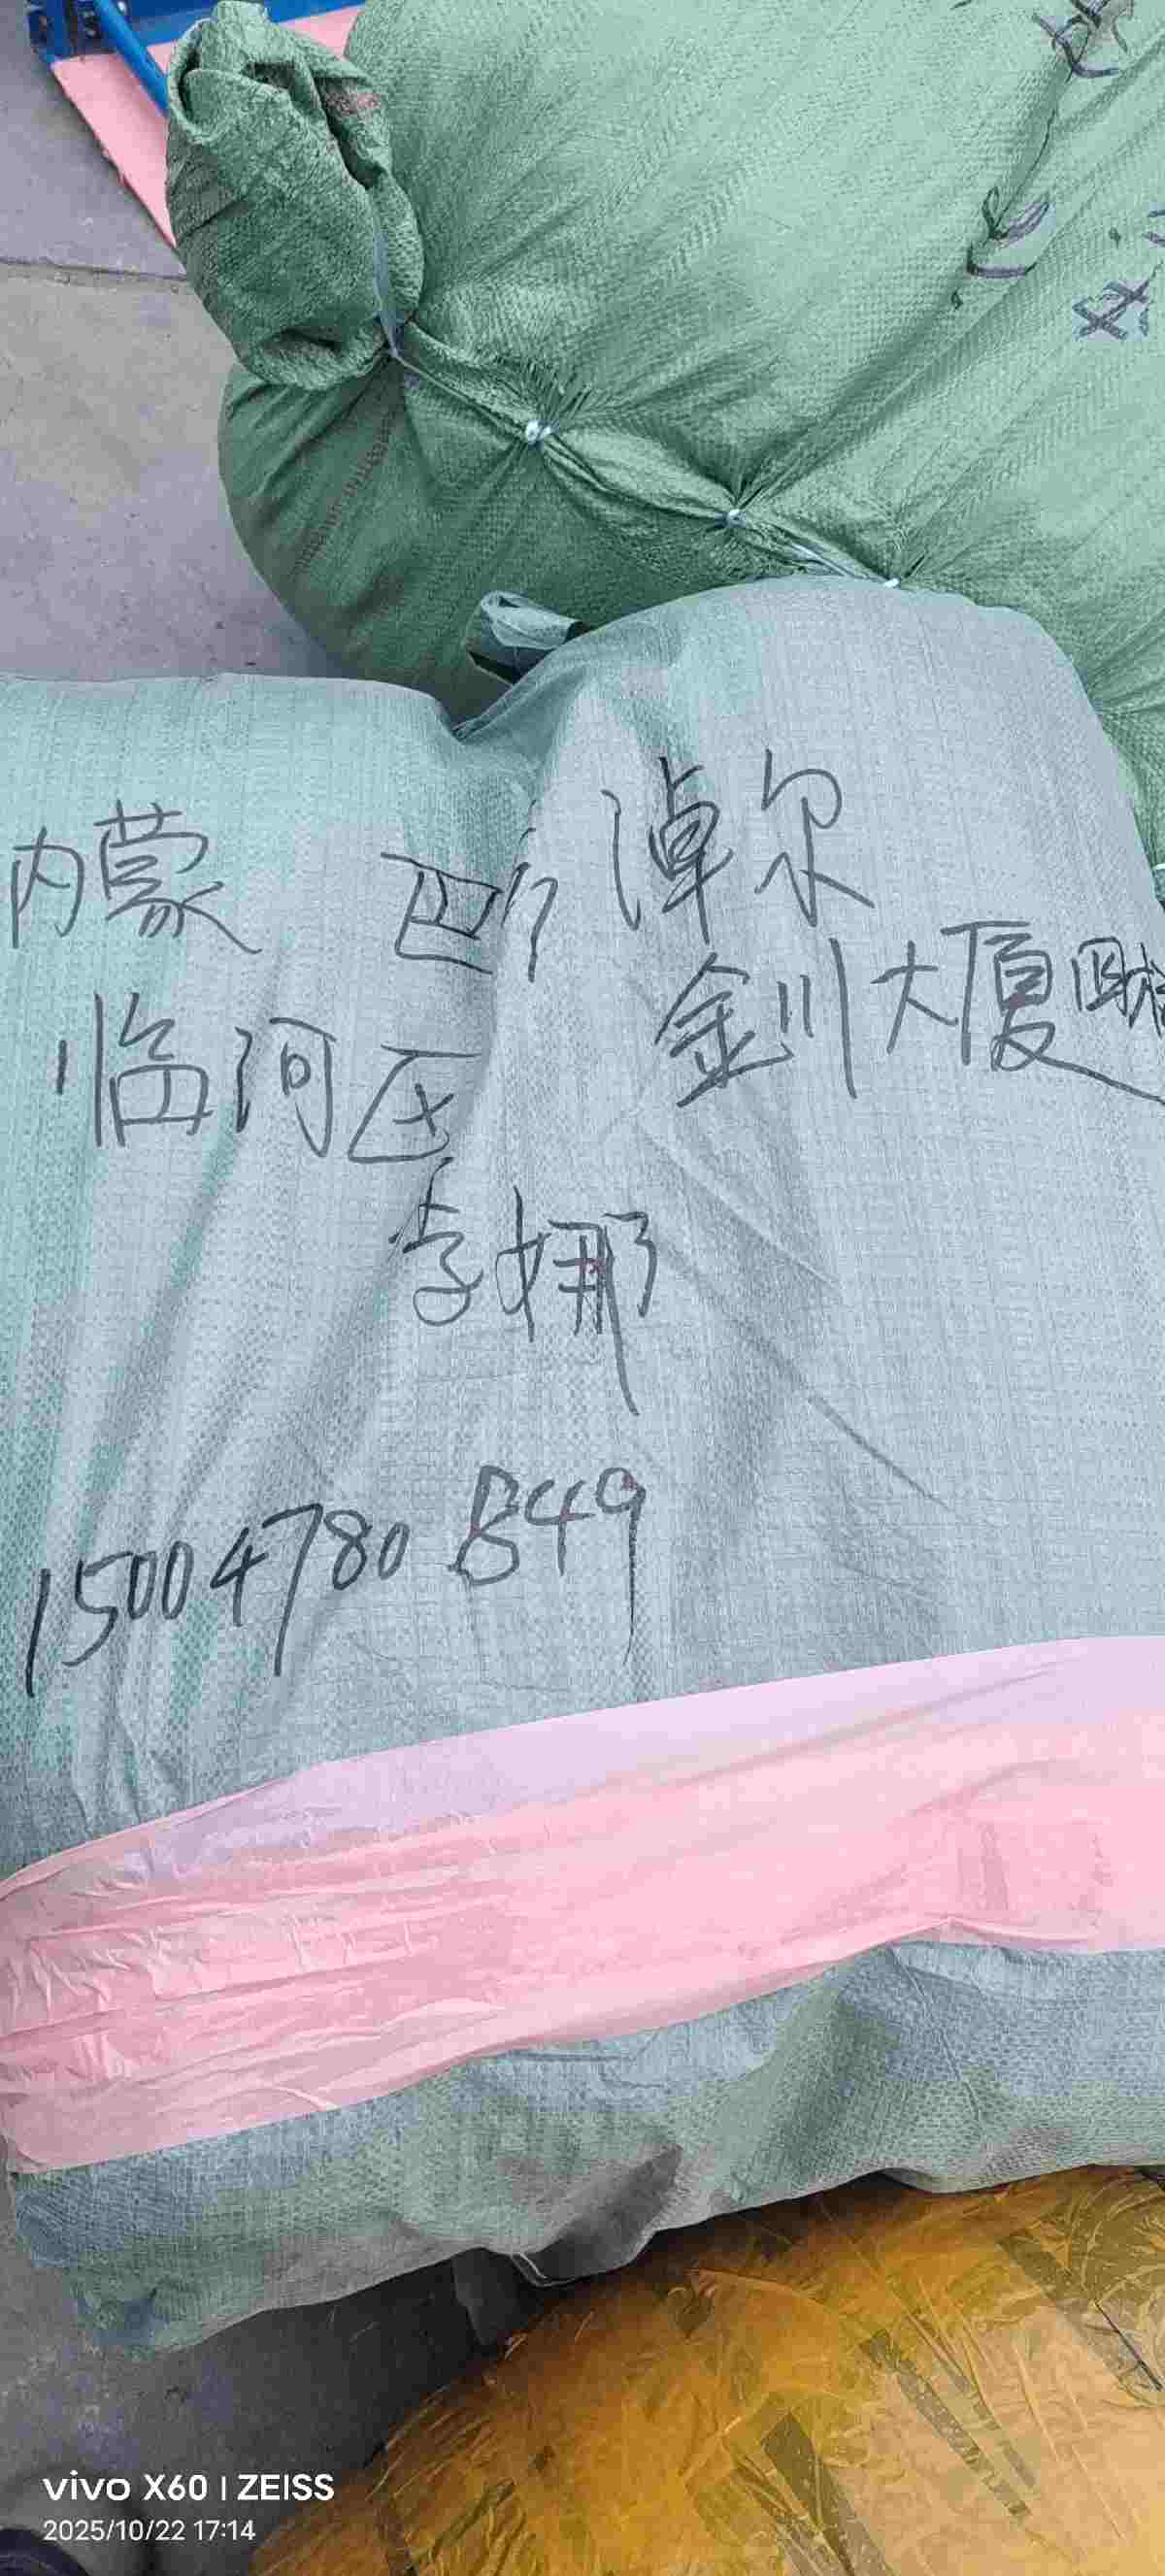 内蒙 巴彦淖尔
临河区 金川大厦
李娜
15004780849
vivo X60 | ZEISS
2025/10/22 17:14